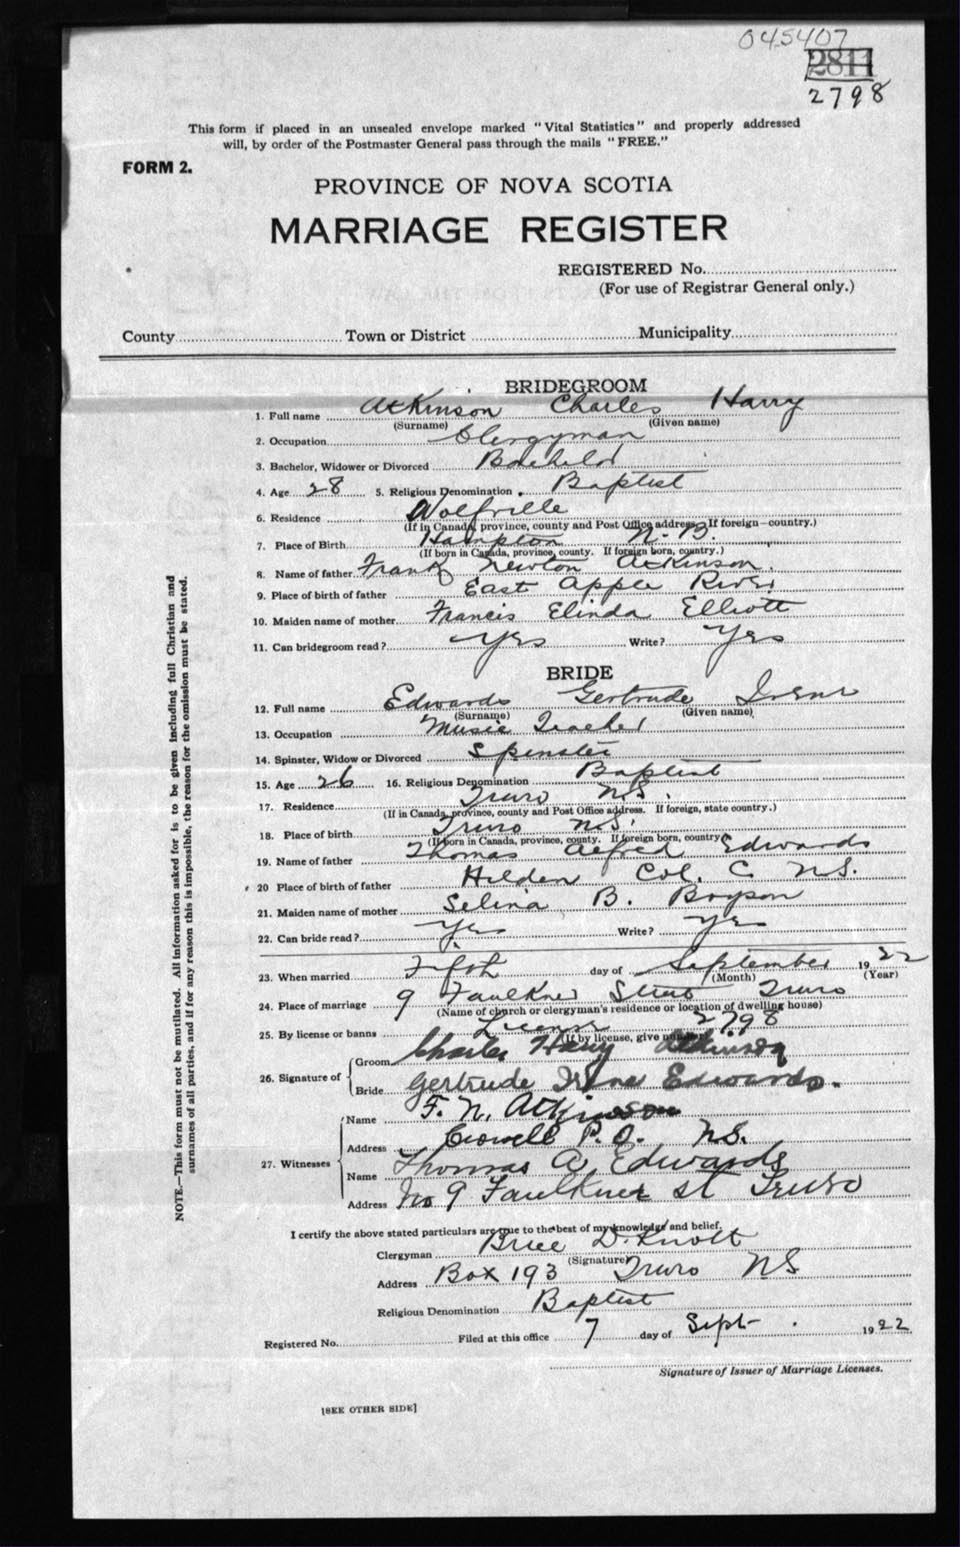 045407
2811
2798
This form if placed in an unsealed envelope marked "Vital Statistics" and properly addressed
will, by order of the Postmaster General pass through the mails "FREE."
FORM 2.
PROVINCE OF NOVA SCOTIA
MARRIAGE REGISTER
REGISTERED No.
(For use of Registrar General only.)
County Town or District Municipality
BRIDEGROOM
1. Full name Atkinson Charles Harry
(Surname) (Given name)
2. Occupation Clergyman
3. Bachelor, Widower or Divorced
4. Age 28 5. Religious Denomination Baptist
6. Residence Wolfville
(If in Canada, province, county and Post Office address. If foreign—country.)
7. Place of Birth Hampton N.B.
(If born in Canada, province, county. If foreign born, country.)
8. Name of father Frank Newton Atkinson.
9. Place of birth of father East Apple River
10. Maiden name of mother Francis Elinda Elliott
11. Can bridegroom read? Yes Write? Yes
BRIDE
12. Full name Edwards Gertrude Irene
(Surname) (Given name)
13. Occupation Music Teacher
14. Spinster, Widow or Divorced Spinster
15. Age 26 16. Religious Denomination Baptist
17. Residence Truro N.S.
(If in Canada, province, county and Post Office address. If foreign, state country.)
18. Place of birth Truro N.S.
(If born in Canada, province, county. If foreign born, country)
19. Name of father Thomas Alfred Edwards
20 Place of birth of father Hilden Col. C N.S.
21. Maiden name of mother Selina B.
22. Can bride read? Yes Write? Yes
23. When married Fifth day of September 1922
(Month) (Year)
24. Place of marriage 9 Faulkner Street Truro
(Name of church or clergyman's residence or location of dwelling house)
25. By license or banns License 2798
(If by license, give number)
26. Signature of Groom Charles Harry Atkinson
Bride Gertrude Irene Edwards.
27. Witnesses
Name F. N. Atkinson
Address P.O. N.S.
Name Thomas A. Edwards
Address No 9 Faulkner St Truro
I certify the above stated particulars are true to the best of my knowledge and belief.
Clergyman D. Knott
(Signature)
Address Box 193 Truro NS
Religious Denomination Baptist
Registered No. Filed at this office 7 day of Sept. 1922
Signature of Issuer of Marriage Licenses.
[SEE OTHER SIDE]
NOTE.—This form must not be mutilated. All information asked for is to be given including full Christian and
surnames of all parties, and if for any reason this is impossible, the reason for the omission must be stated.